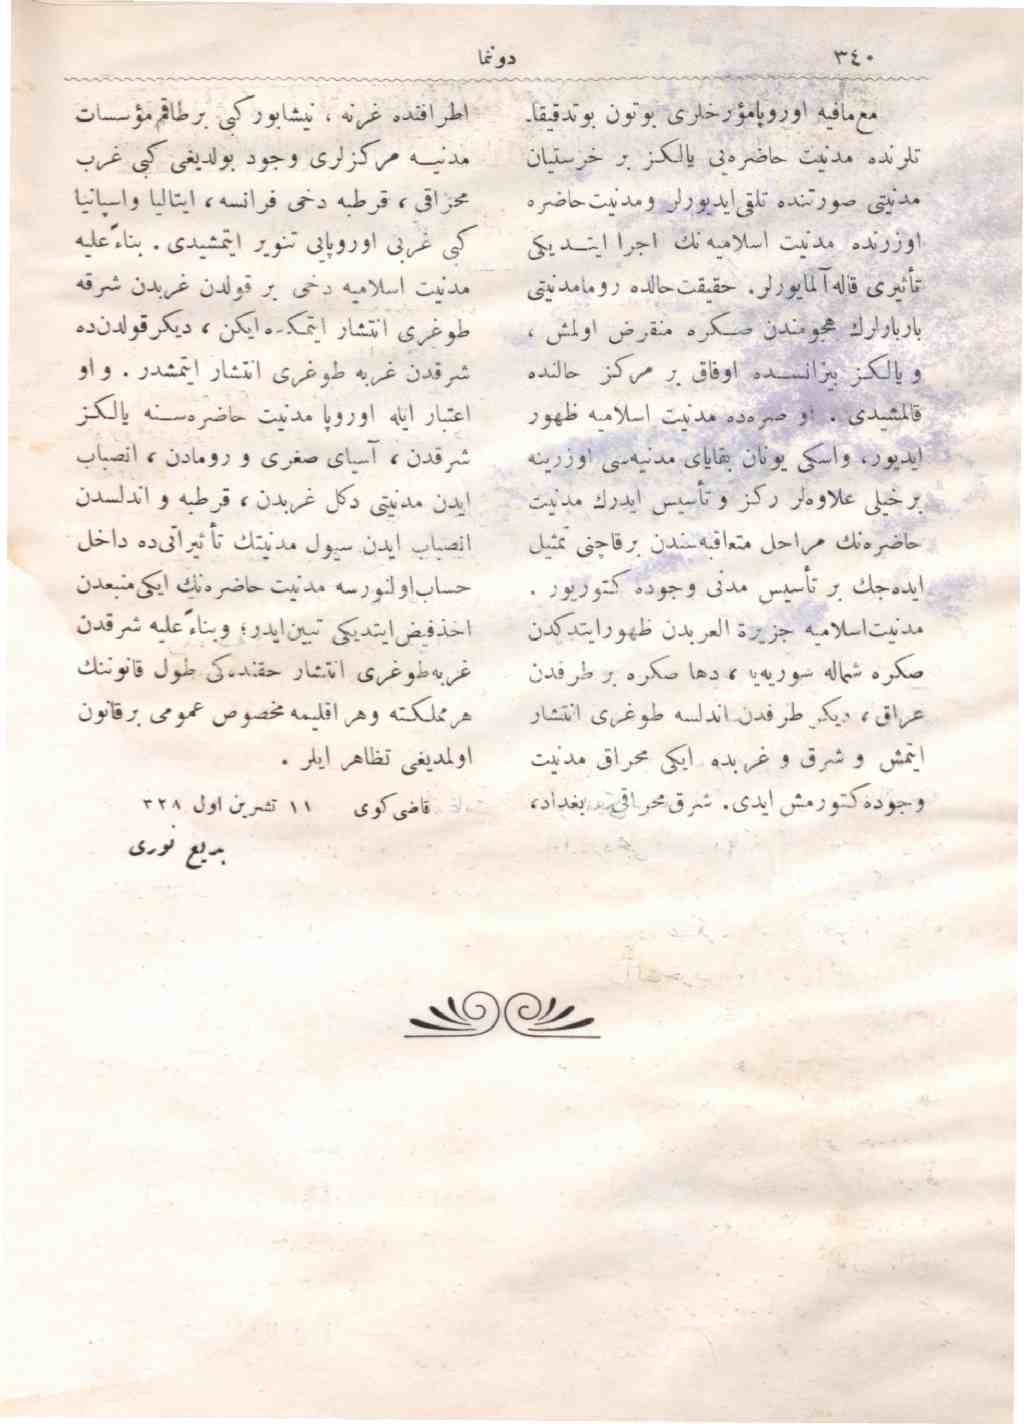 ٣٤٠
دونما
مع‌مافیه اوروپامؤرخلری بوتون بوتدقیقا-
تلرنده مدنیت حاضره‌یی یالکز بر خرستیان
مدنیتی صورتنده تلقی‌ایدیورلر ومدنیت‌حاضره
اوزرنده مدنیت اسلامیه‌نك اجرا ایتـدیکی
تأثیری قاله‌آلمایورلر. حقیقت‌حالده رومامدنیتی
باربارلرك هجومندن صـکره منقرض اولمش ،
و یالکـز بیزانسـده اوفاق بر مرکز حالنده
قالمشیدی . او صره‌ده مدنیت اسلامیه ظهور
ایدیور، واسکی یونان بقایای مدنیه‌سی اوزرینه
برخیلی علاوه‌لر رکز و تأسیس ایدرك مدنیت
حاضره‌نك مراحل متعاقبه‌سندن برقاچنی تمثیل
ایده‌جك بر تأسیس مدنی وجوده کتوریور .
مدنیت‌اسلامیه جزیرة العربدن ظهورایتدکدن
صکره شماله سوریه‌یه ، دها صکره بر طرفدن
عراق، دیکر طرفدن اندلسه طوغری انتشار
ایتمش و شرق و غربده ایکی محراق مدنیت
وجوده کتورمش ایدی. شرق‌محراقی بغداد،
اطرافنده غزنه ، نیشابور کبی برطاقم‌مؤسسات
مدنیـه مرکزلری وجود بولدیغی کبی غرب
محراقی ، قرطبه دخی فرانسه، ایتالیا واسپانیا
کبی غربی اوروپایی تنویر ایتمشیدی . بناءً‌علیه
مدنیت اسلامیه دخی بر قولدن غربدن شرقه
طوغری انتشار ایتمکده‌ایکن ، دیکرقولدن‌ده
شرقدن غربه طوغری انتشار ایتمشدر . و او
اعتبار ایله اوروپا مدنیت حاضره‌سـنه یالکـز
شرقدن ، آسیای صغری و رومادن ، انصباب
ایدن مدنیتی دکل غربدن ، قرطبه و اندلسدن
انصباب ایدن سیول مدنیتك تأثیراتی‌ده داخل
حساب‌اولنورسه مدنیت حاضره‌نك ایکی‌منبعدن
اخذفیض‌ایتدیکی تبین‌ایدر؛ وبناءً‌علیه شرقدن
غربه‌طوغری انتشار حقنده‌کی طول قانوننك
هرمملکته وهر اقلیمه مخصوص عمومی برقانون
اولمدیغی تظاهر ایلر .
قاضی‌کوی ١١ تشرین اول ٣٢٨
بدیع نوری